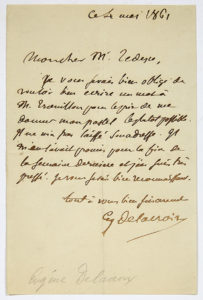 Ce 4 mai 1861
Mon cher Mr. Tedesco,
Je vous serais bien obligé de
vouloir bien écrire un mot à
Mr. pour le prier de me
donner mon pastel le plutot possible
Il ne m'a pas laissé son adresse. Il
m'en avait promis pour la fin de
la semaine dernière et j'en suis très
pressé. je vous serais bien reconnaissant.
tout à vous bien sincèrement
Eg Delacroix
Eugène Delacroix